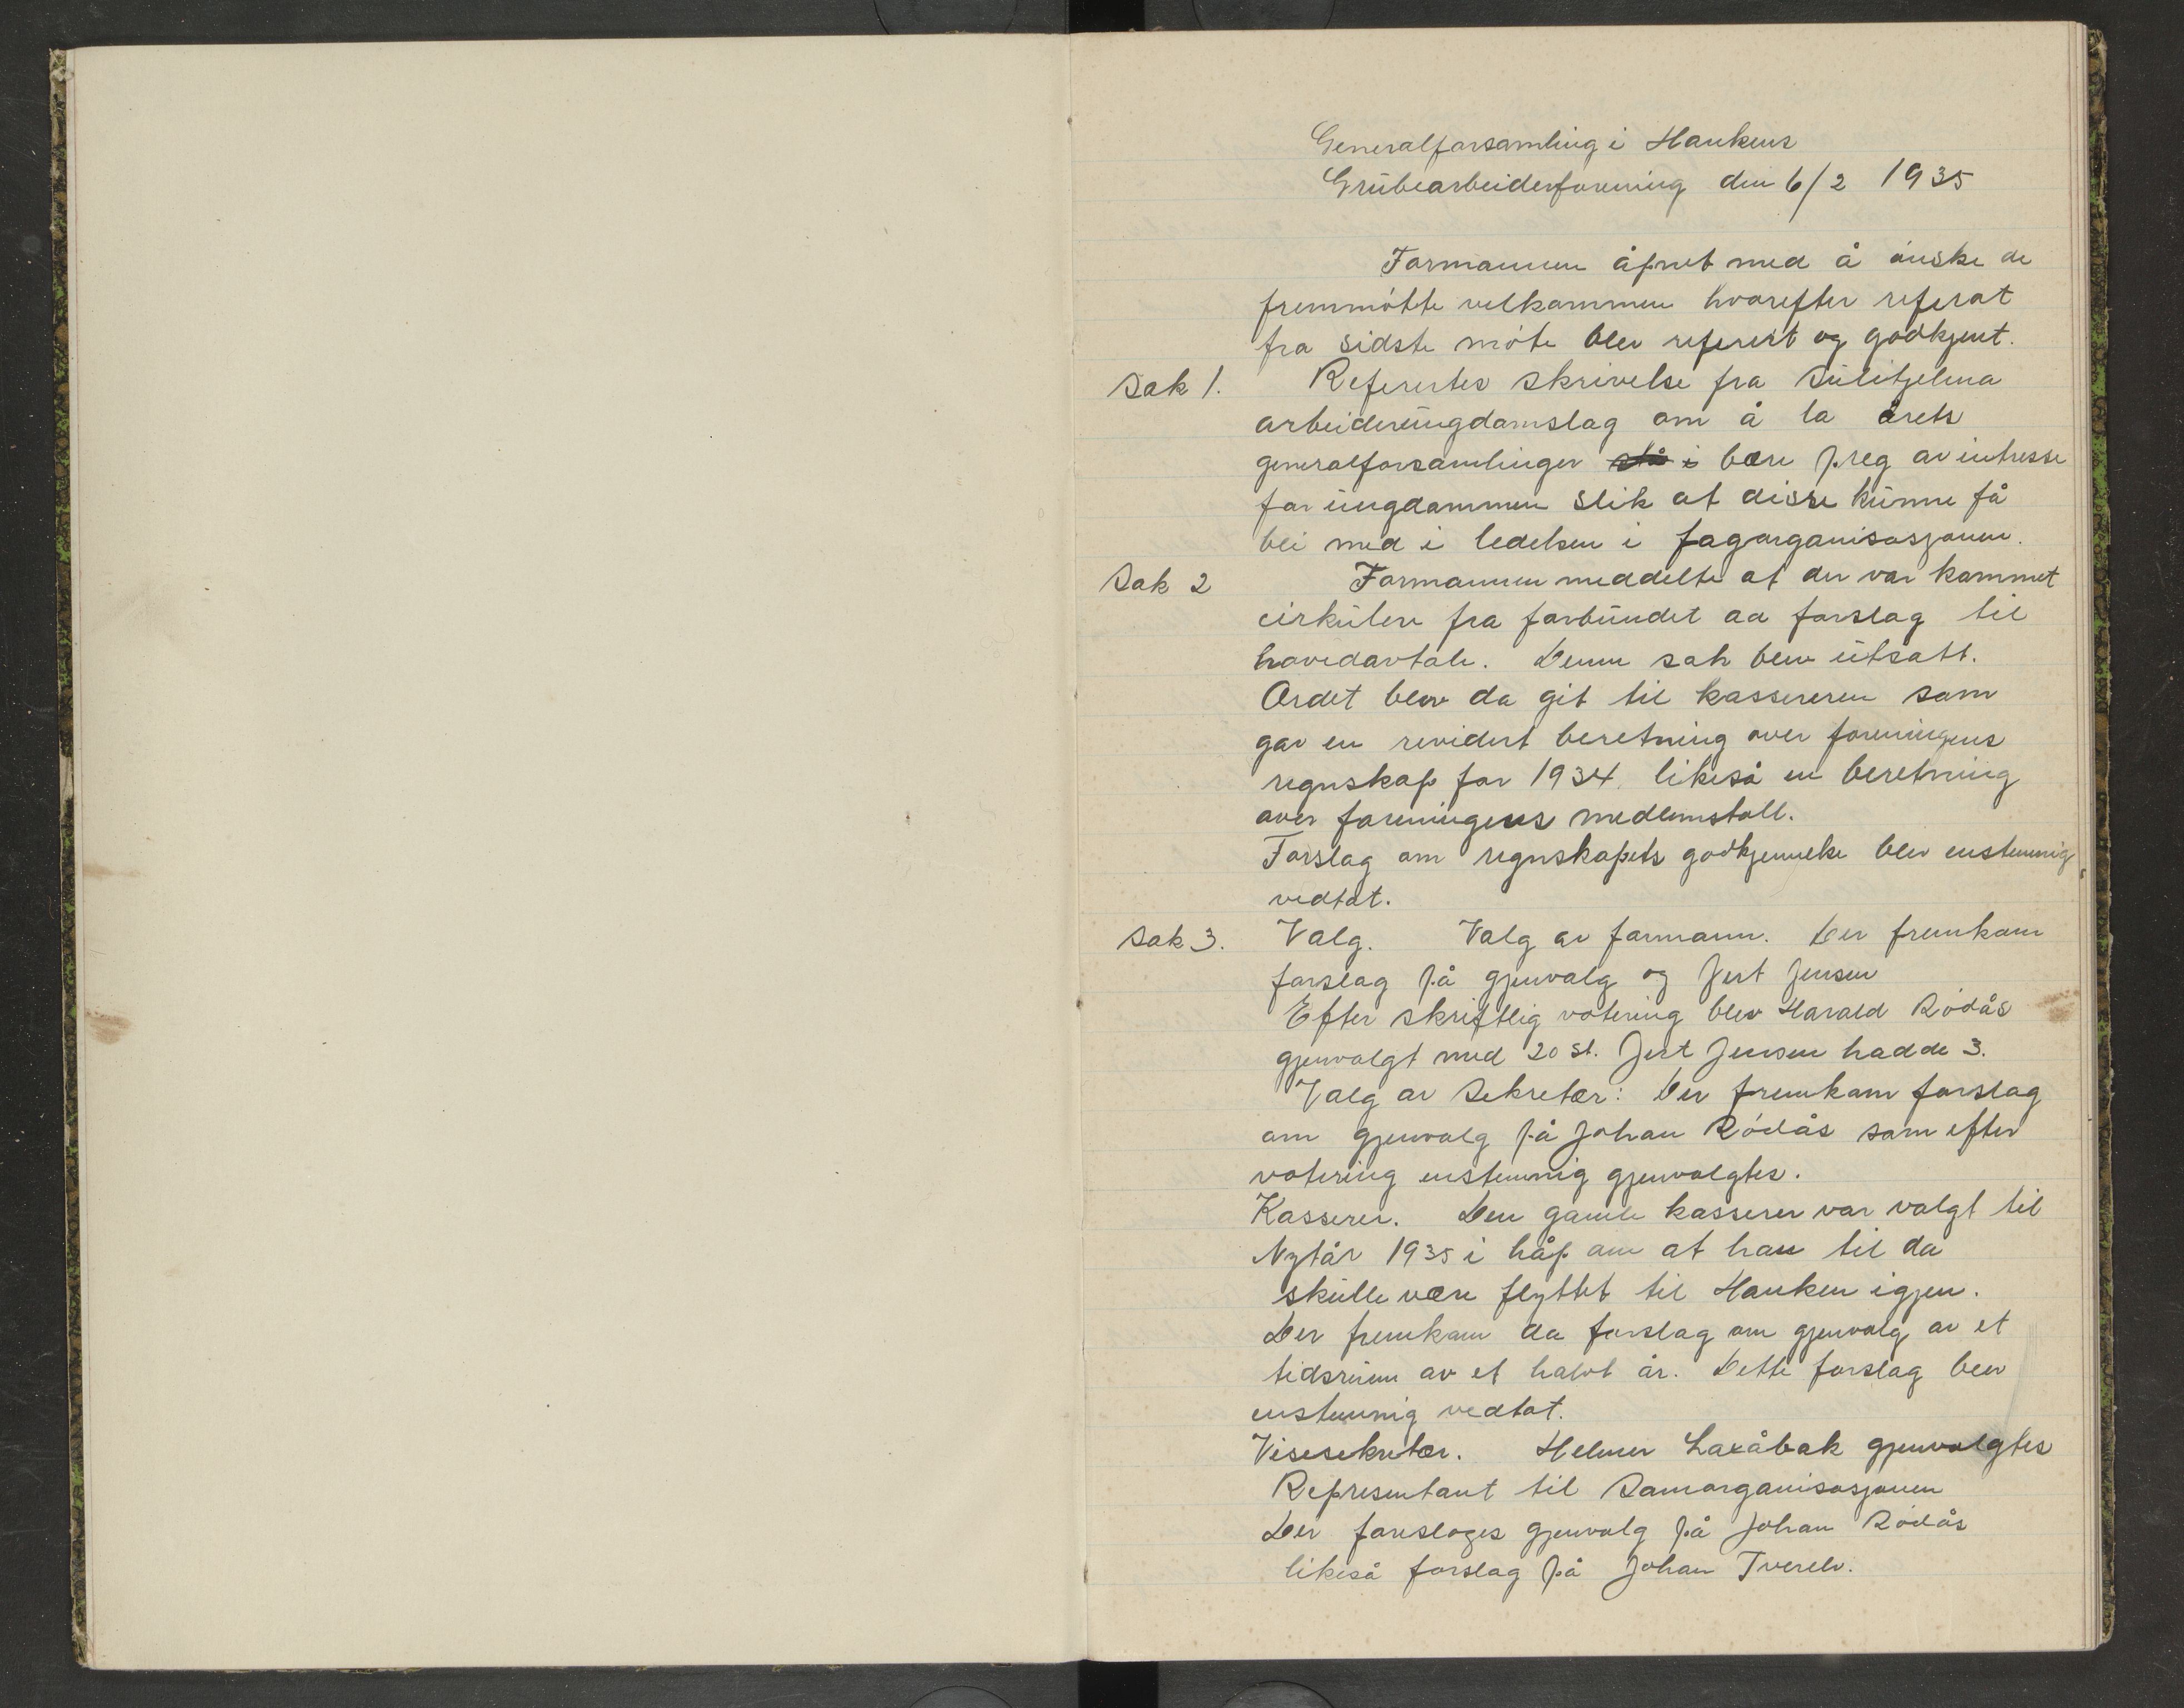 Generalforsamling i Hankens
Grubearbeiderforening den 6/2 1935
Formannen åpnet med å ønske de
fremmøtte velkommen hvorefter referat
fra sidste møte blev referert og godkjent.
Sak 1. Refertes skrivelse fra Sulitjelma
arbeiderungdomslag om å la årets
generalforsamlinger stå i bære preg av intresse
for ungdommen slik at disse kunne få
bli med i ledelsen i fagorganisasjonen.
Sak 2 Formannen meddelte at der var kommet
cirkulere fra forbundet ad forslag til
hovedavtale. Denne sak blev utsatt.
Ordet blev da git til kassereren som
gav en revidert beretning over foreningens
regnskap for 1934. likeså en beretning
over foreningens medlemstall.
Forslag om regnskapets godkjennelse blev enstemmig
vedtat.
Sak 3. Valg. Valg av formann. Der fremkom
forslag på gjenvalg og Jert Jensen
Efter skriftlig votering blev Harald Rødås
gjenvalgt med 20 st. Jert Jensen hadde 3.
Valg av Sekretær: Der fremkom forslag
om gjenvalg på Johan Rødås som efter
votering enstemmig gjenvalgtes.
Kasserer. Den gamle kasserer var valgt til
Nytår 1935 i håp om at han til da
skulle være flyttet til Hanken igjen.
Der fremkom da forslag om gjenvalg av et
tidsrum av et halvt år. Dette forslag blev
enstemmig vedtat.
Visesekretær. Helmer Laxåbak gjenvalgtes
Representant til Samorganisasjonen
Der foresloges gjenvalg på Johan Rødås
likeså forslag på Johan Tverelv.